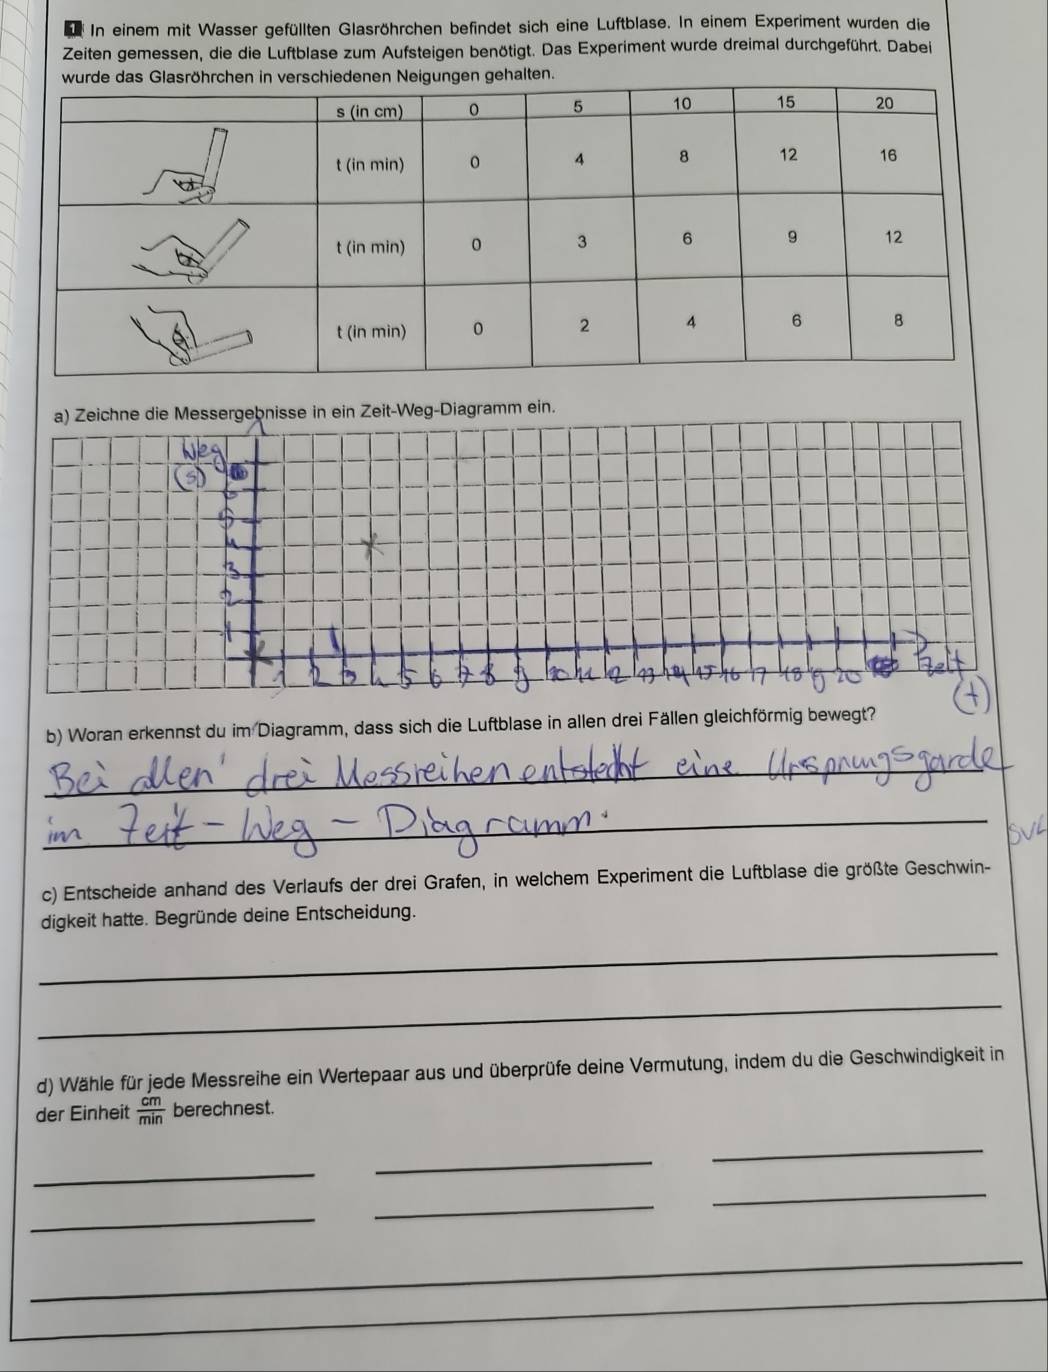 1 In einem mit Wasser gefüllten Glasröhrchen befindet sich eine Luftblase. In einem Experiment wurden die
Zeiten gemessen, die die Luftblase zum Aufsteigen benötigt. Das Experiment wurde dreimal durchgeführt. Dabei
wurde das Glasröhrchen in verschiedenen Neigungen gehalten.
s (in cm) 0 5 10 15 20
t (in min) 0 4 8 12 16
t (in min) 0 3 6 9 12
t (in min) 0 2 4 6 8
a) Zeichne die Messergebnisse in ein Zeit-Weg-Diagramm ein.
Weg
(s)
6
5
4
3
2
1
1 2 3 4 5 6 7 8 9 10 11 12 13 14 15 16 17 18 19 20 Zeit
(t)
b) Woran erkennst du im Diagramm, dass sich die Luftblase in allen drei Fällen gleichförmig bewegt?
Bei allen drei Messreihen entsteht eine Ursprungsgarde
im Zeit-Weg-Diagramm.
c) Entscheide anhand des Verlaufs der drei Grafen, in welchem Experiment die Luftblase die größte Geschwin-
digkeit hatte. Begründe deine Entscheidung.
d) Wähle für jede Messreihe ein Wertepaar aus und überprüfe deine Vermutung, indem du die Geschwindigkeit in
der Einheit cm/min berechnest.